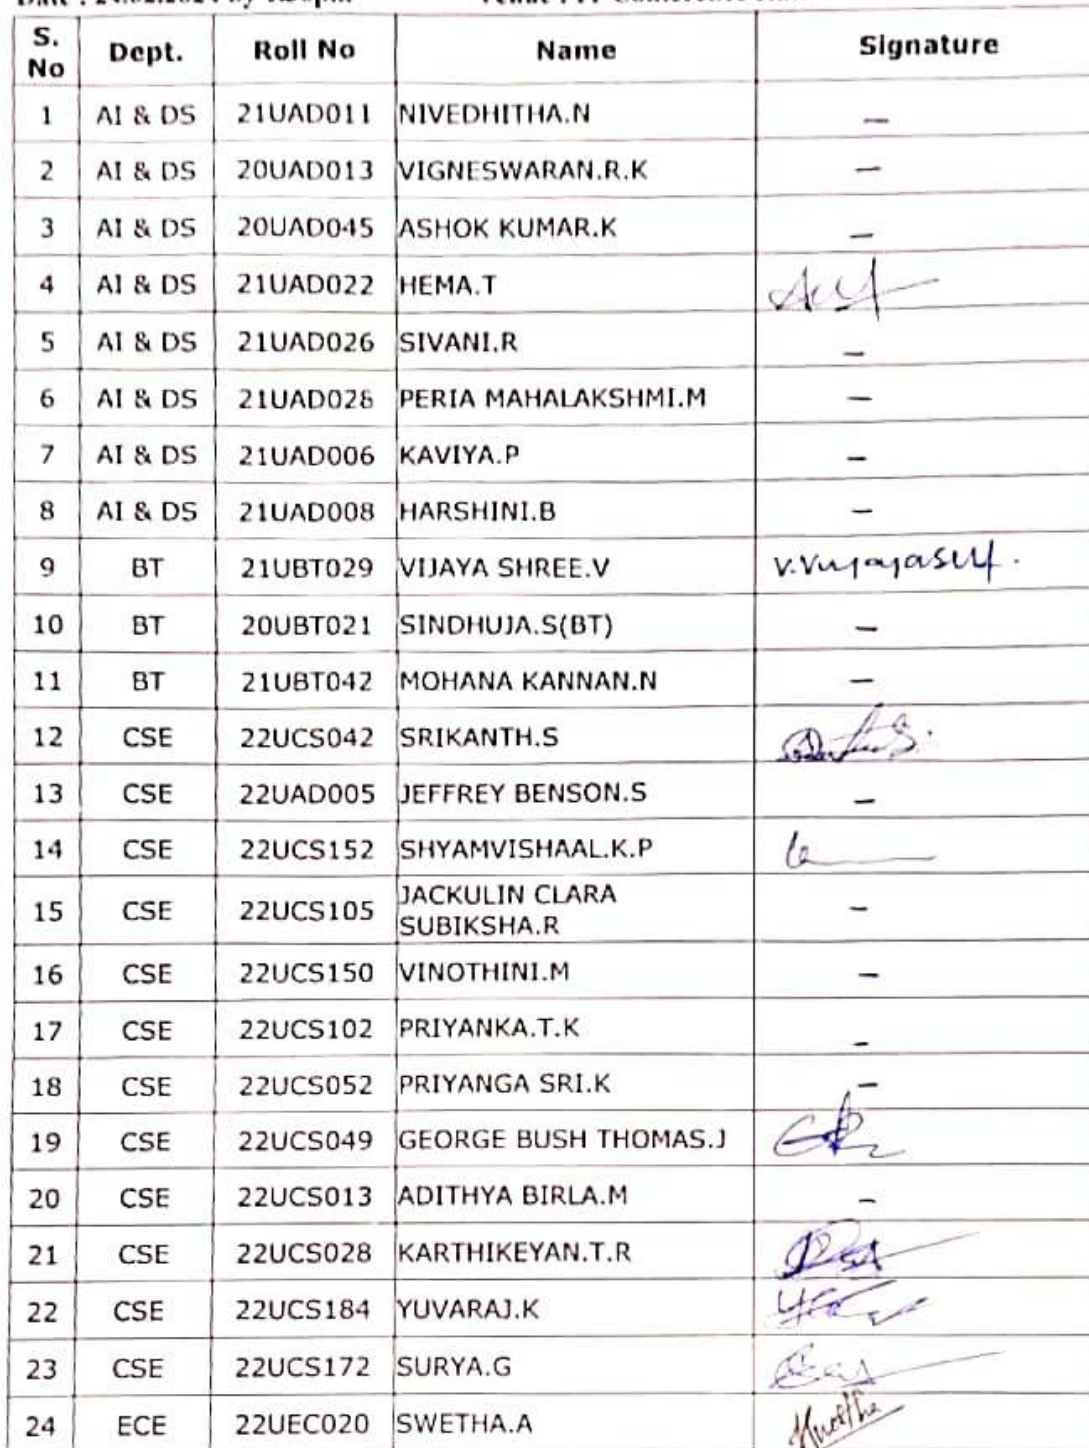 S. No Dept. Roll No Name Signature
1 AI & DS 21UAD011 NIVEDHITHA.N –
2 AI & DS 20UAD013 VIGNESWARAN.R.K –
3 AI & DS 20UAD045 ASHOK KUMAR.K –
4 AI & DS 21UAD022 HEMA.T
5 AI & DS 21UAD026 SIVANI.R –
6 AI & DS 21UAD028 PERIA MAHALAKSHMI.M –
7 AI & DS 21UAD006 KAVIYA.P –
8 AI & DS 21UAD008 HARSHINI.B –
9 BT 21UBT029 VIJAYA SHREE.V
10 BT 20UBT021 SINDHUJA.S(BT) –
11 BT 21UBT042 MOHANA KANNAN.N –
12 CSE 22UCS042 SRIKANTH.S
13 CSE 22UAD005 JEFFREY BENSON.S –
14 CSE 22UCS152 SHYAMVISHAAL.K.P
15 CSE 22UCS105 JACKULIN CLARA
SUBIKSHA.R –
16 CSE 22UCS150 VINOTHINI.M –
17 CSE 22UCS102 PRIYANKA.T.K –
18 CSE 22UCS052 PRIYANGA SRI.K –
19 CSE 22UCS049 GEORGE BUSH THOMAS.J
20 CSE 22UCS013 ADITHYA BIRLA.M –
21 CSE 22UCS028 KARTHIKEYAN.T.R
22 CSE 22UCS184 YUVARAJ.K
23 CSE 22UCS172 SURYA.G
24 ECE 22UEC020 SWETHA.A